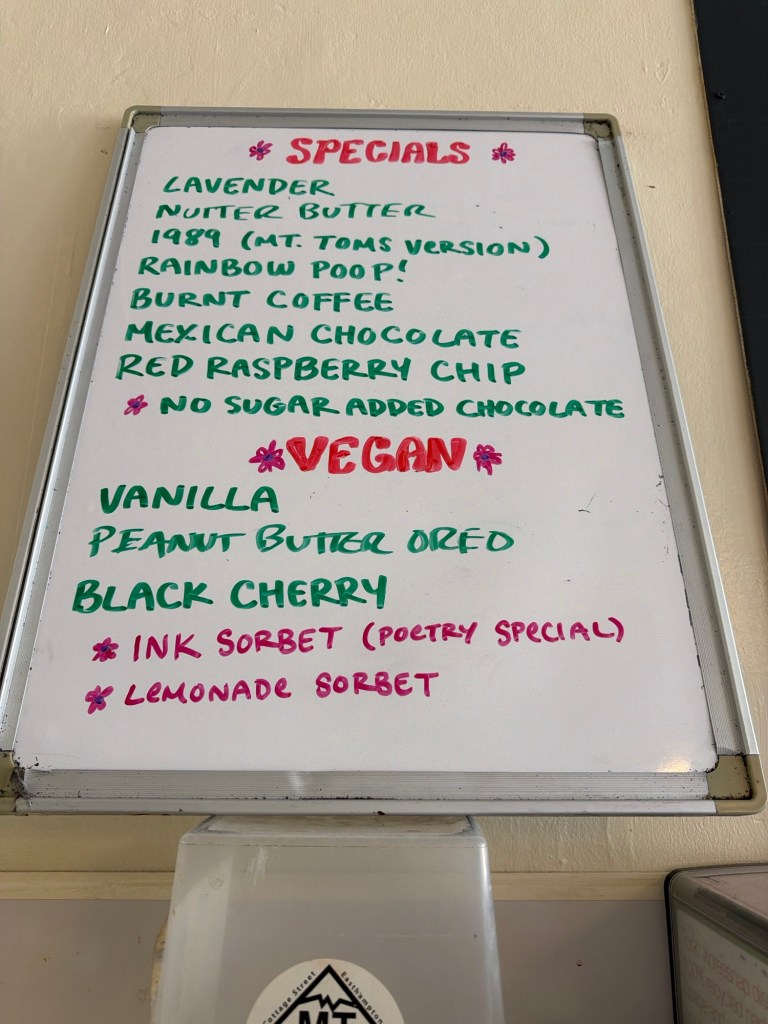 SPECIALS
LAVENDER
NUTTER BUTTER
1989 (MT. TOMS VERSION)
RAINBOW POOP!
BURNT COFFEE
MEXICAN CHOCOLATE
RED RASPBERRY CHIP
* NO SUGAR ADDED CHOCOLATE
VEGAN
VANILLA
PEANUT BUTTER OREO
BLACK CHERRY
* INK SORBET (POETRY SPECIAL)
* LEMONADE SORBET
Cottage Street Easthampton
MT